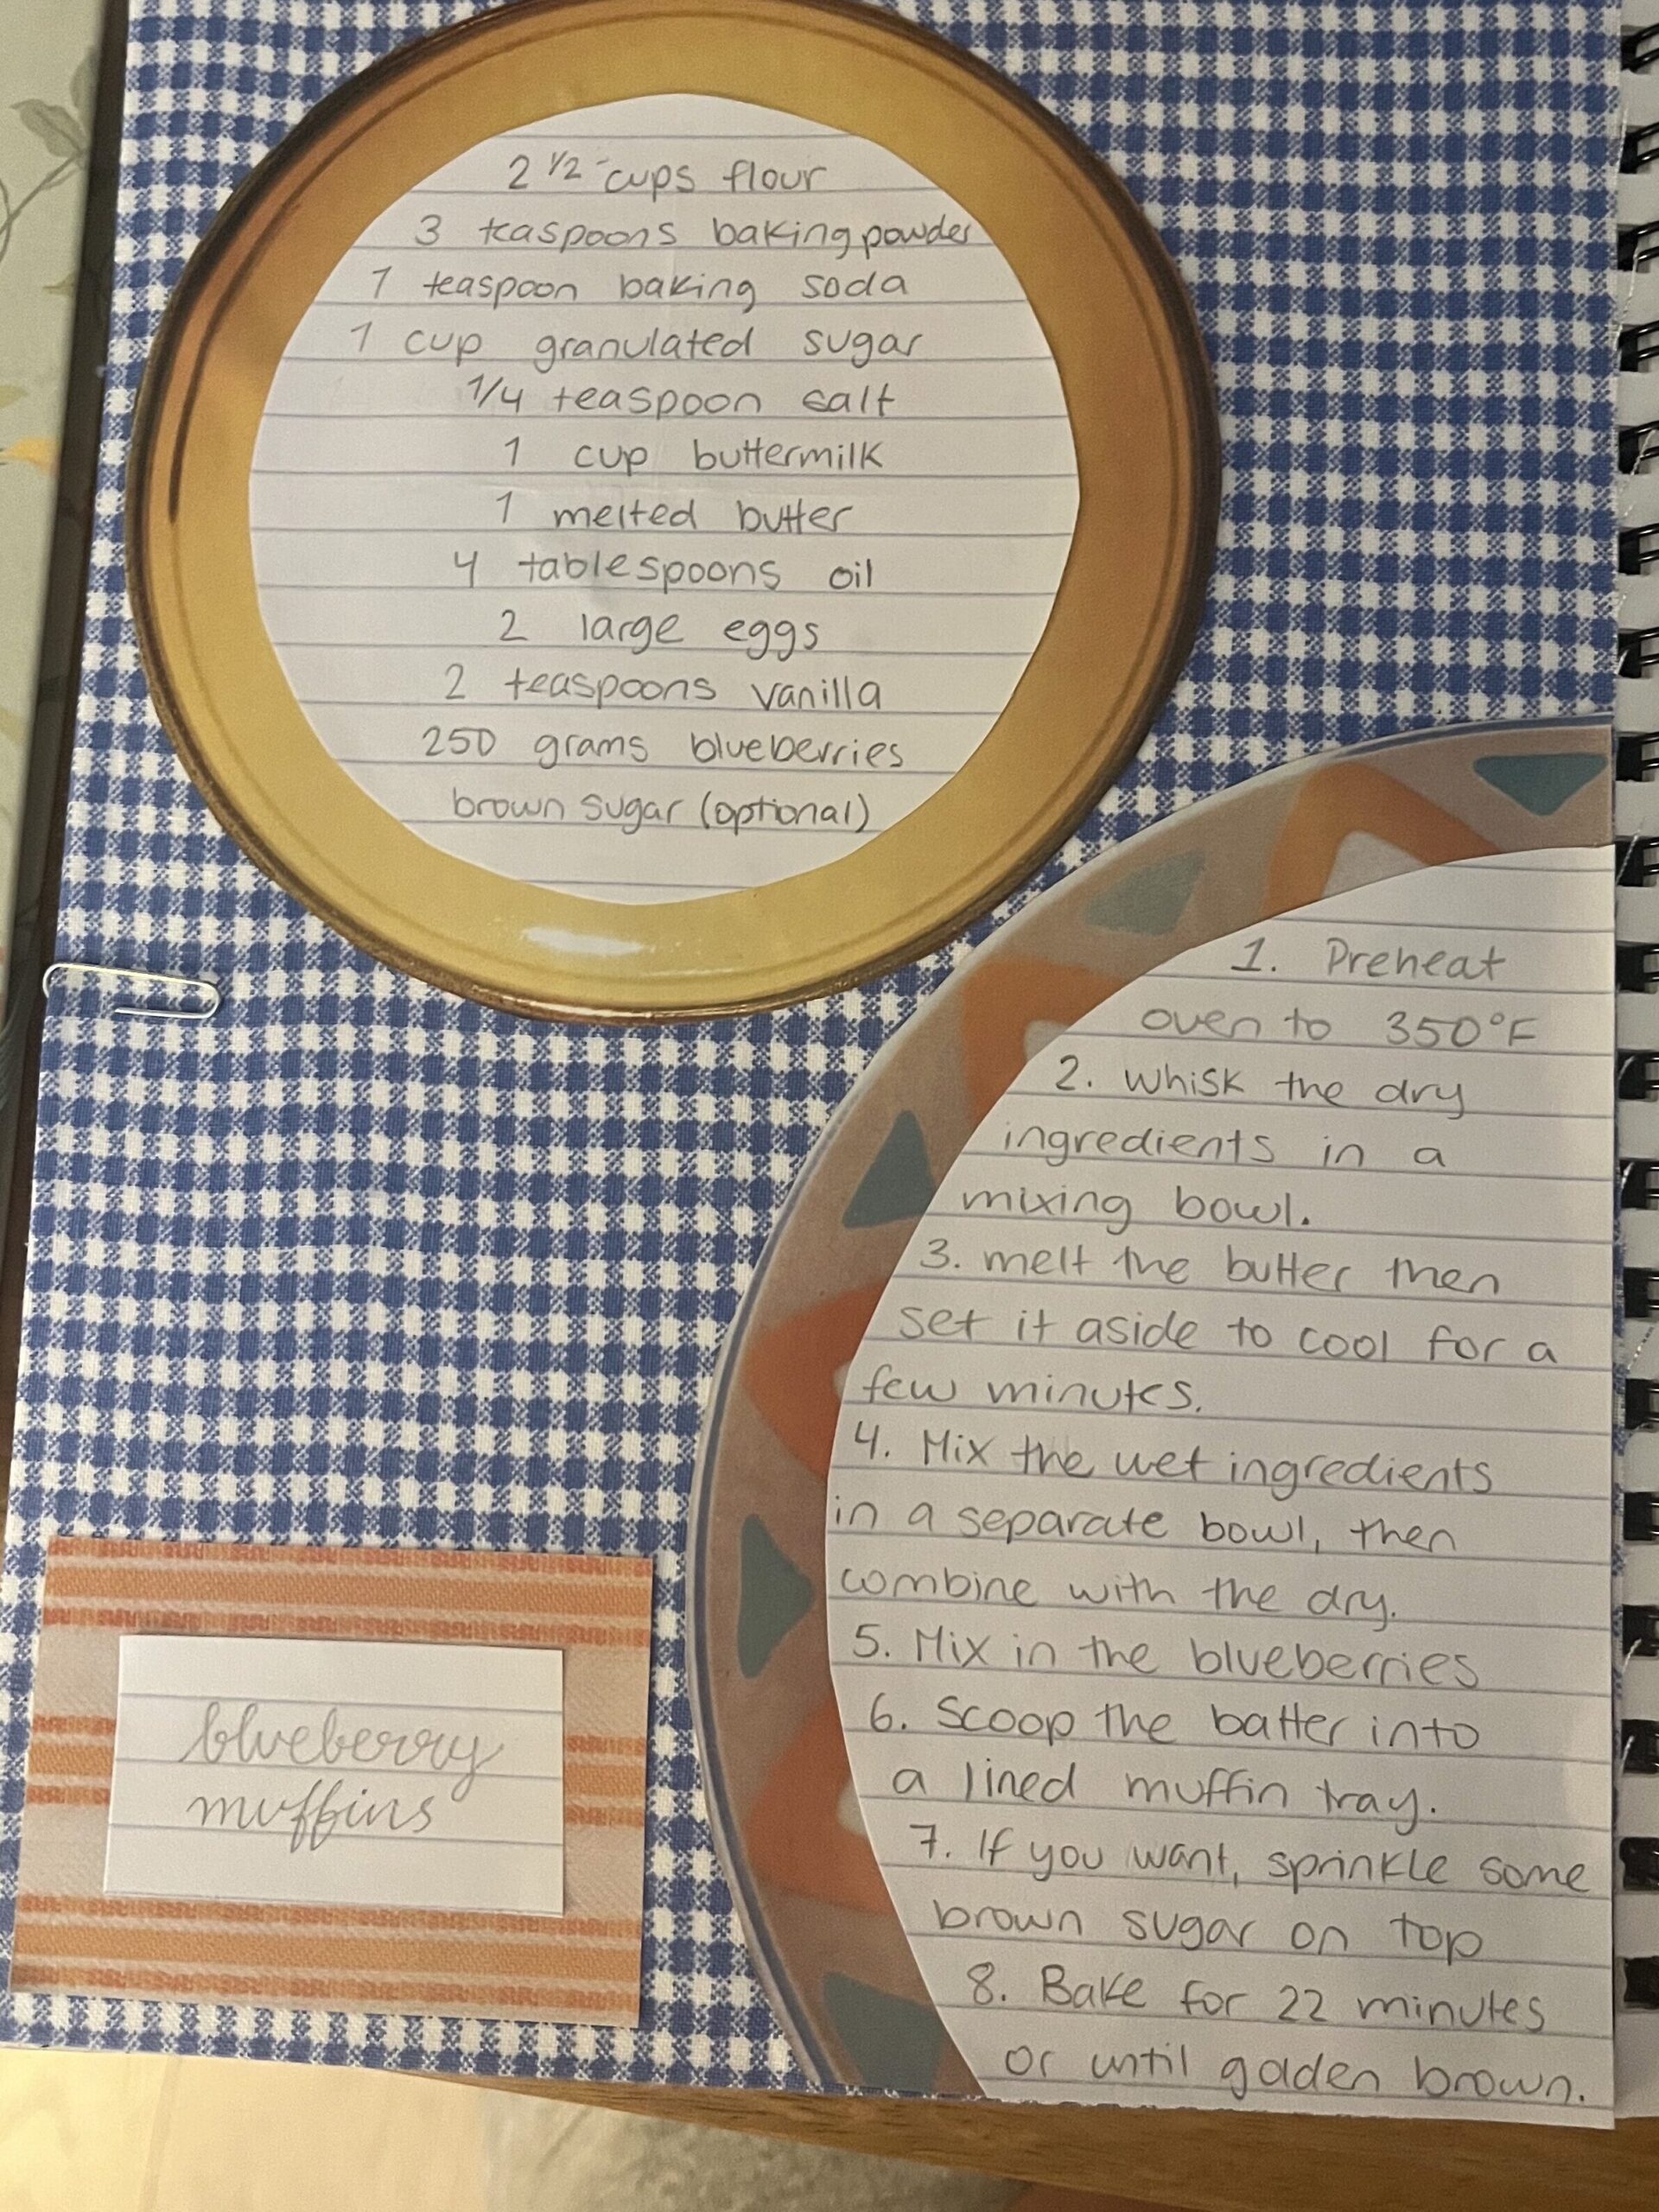 2 1/2 cups flour
3 teaspoons baking powder
1 teaspoon baking soda
1 cup granulated sugar
1/4 teaspoon salt
1 cup buttermilk
1 melted butter
4 tablespoons oil
2 large eggs
2 teaspoons vanilla
250 grams blueberries
brown sugar (optional)
1. Preheat
oven to 350°F
2. Whisk the dry
ingredients in a
mixing bowl.
3. melt the butter then
set it aside to cool for a
few minutes.
4. Mix the wet ingredients
in a separate bowl, then
combine with the dry.
5. Mix in the blueberries
6. Scoop the batter into
a lined muffin tray.
7. If you want, sprinkle some
brown sugar on top
8. Bake for 22 minutes
or until golden brown.
blueberry
muffins